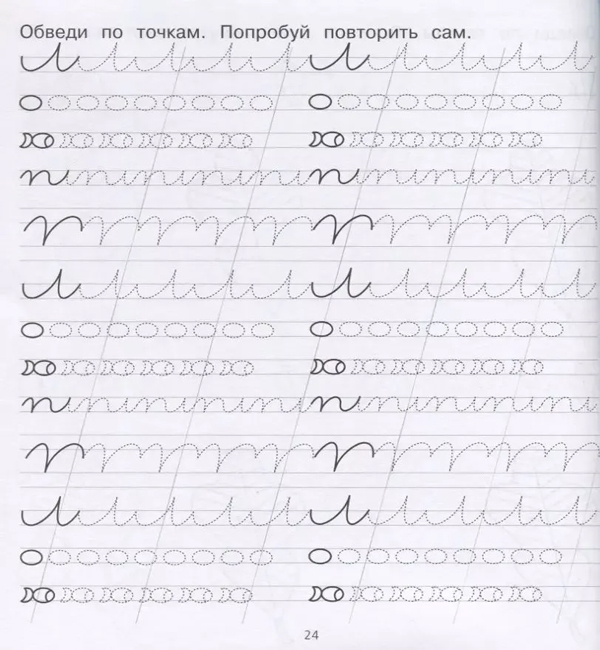 Обведи по точкам. Попробуй повторить сам.
24